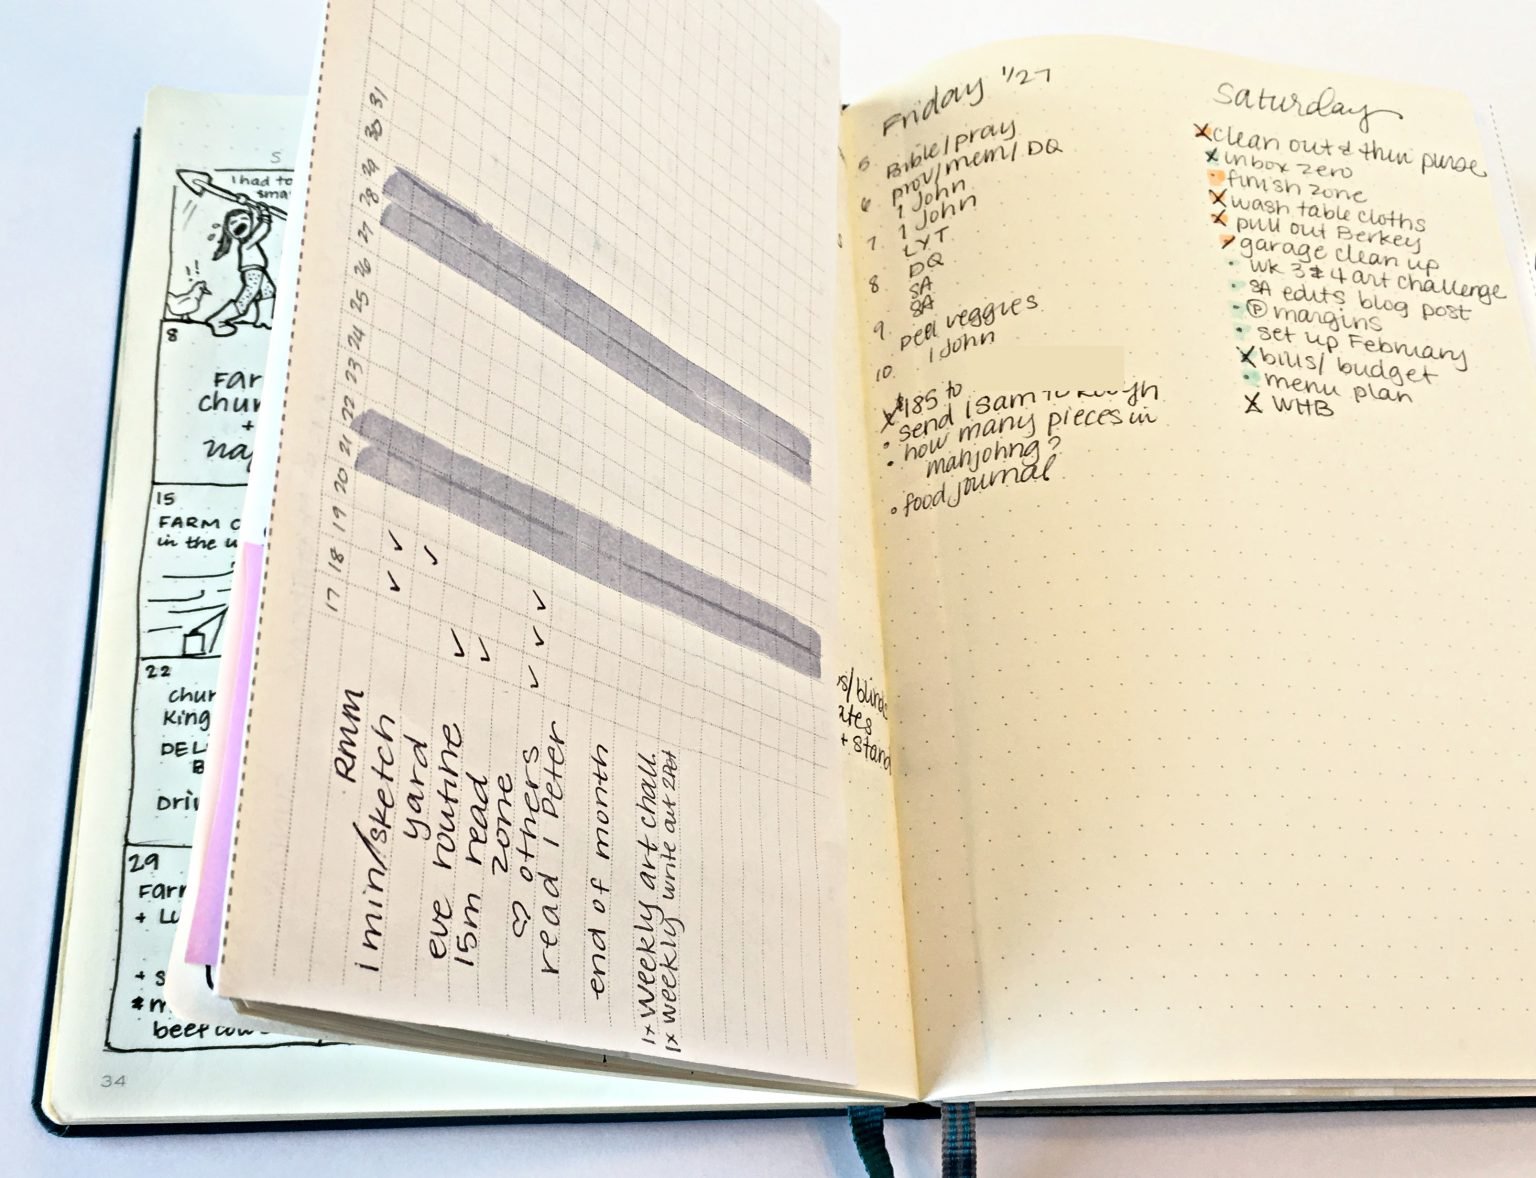 S
I had to
sma
8
Far
chur
+
nap
15
FARM
in the w
22
chur
King
DEL
B
Drin
29
Farm
+ Lu
+ S
* m
beef cow
34
17 18 19 20 21 22 23 24 25 26 27 28 29 30 31
RMM
1 min/sketch
yard
eve routine
15m read
zone
♡ others
read 1 Peter
end of month
1x weekly art chall.
1x weekly write out 2Pet
s/blinds
ates
+ stand
Friday 1/27
5. Bible/pray
prov/mem/DQ
6 1 John
1 John
7. LYT
DQ
8. SA
SA
9. peel veggies
1 John
10.
$185 to
send
how many pieces in
mahjohng?
food journal
Saturday
clean out & thin purse
inbox zero
finish zone
wash table cloths
pull out Berkey
garage clean up
wk 3 & 4 art challenge
SA edits blog post
Ⓟ margins
set up February
bills/budget
menu plan
WHB